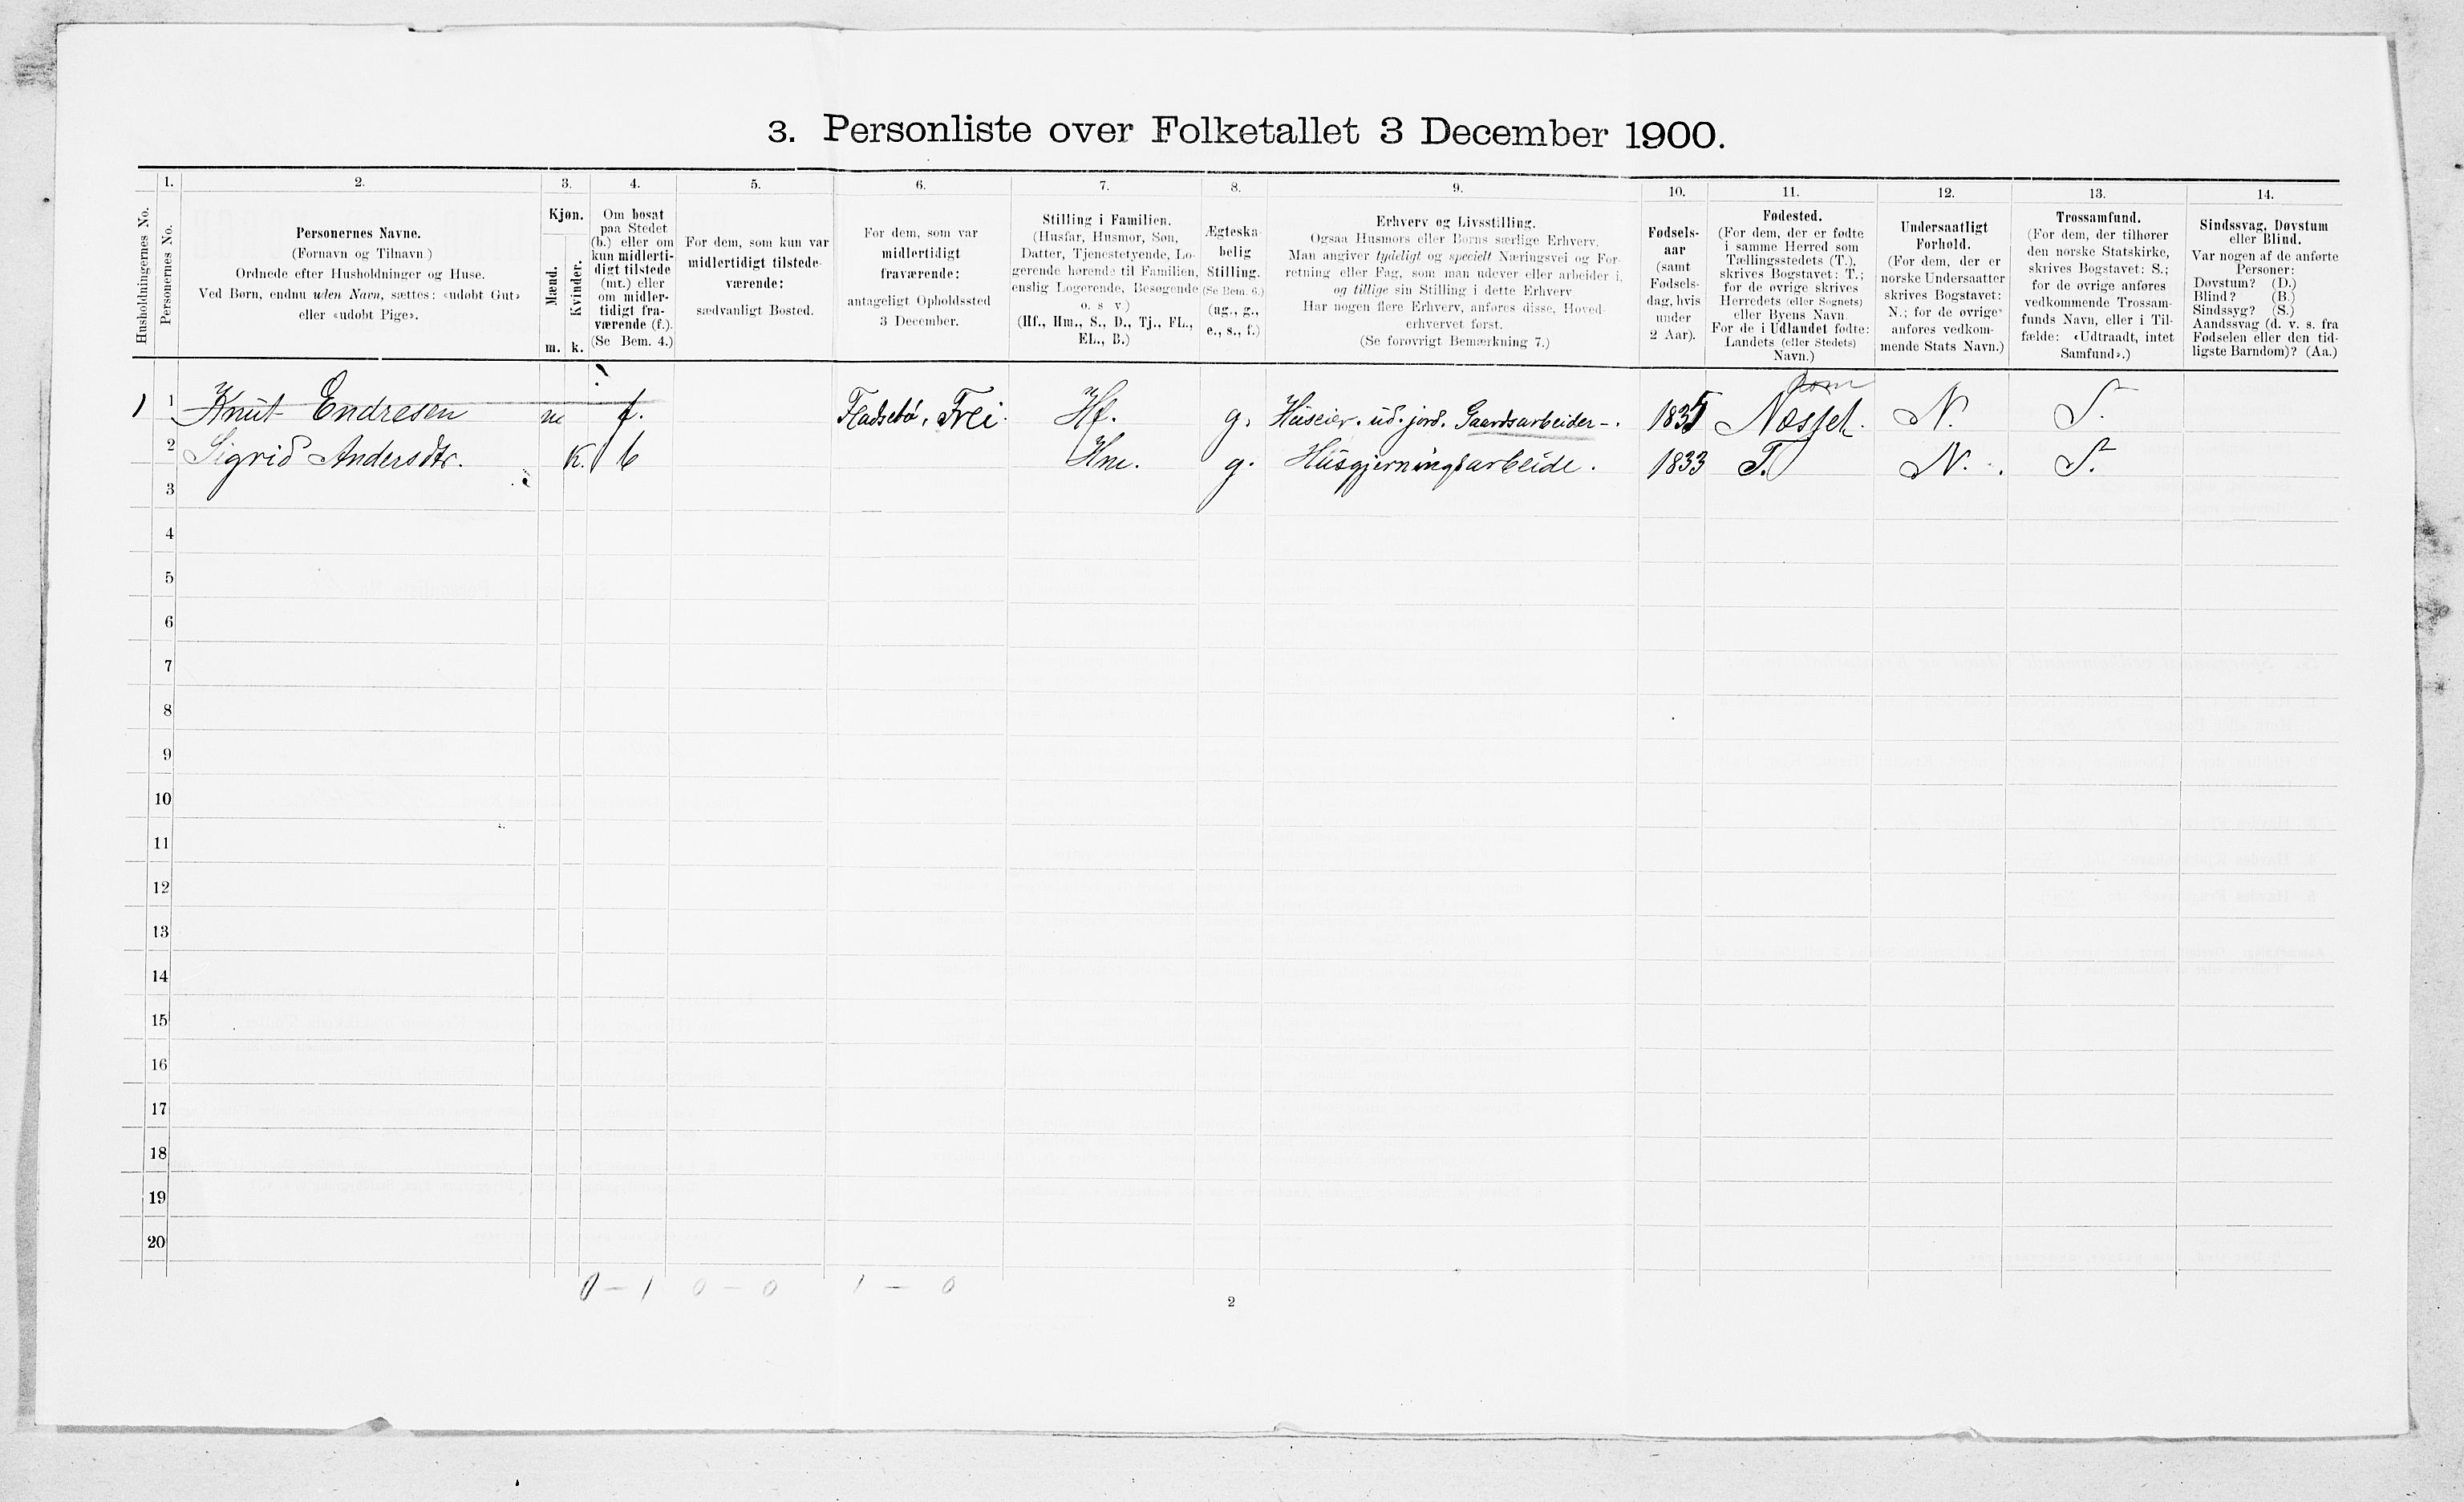 3. Personliste over Folketallet 3 December 1900.
1. 2. 3. 4. 5. 6. 7. 8. 9. 10. 11. 12. 13. 14.
Husholdningernes No.
Personernes No.
Personernes Navne.
(Fornavn og Tilnavn)
Ordnede efter Husholdninger og Huse.
Ved Børn, endnu uden Navn, sættes: «udøbt Gut»
eller «udøbt Pige».
Kjøn.
Mænd.
Kvinder.
m. k.
Om bosat
paa Stedet
(b.) eller om
kun midlerti-
digt tilstede
(mt.) eller
om midler-
tidigt fra-
værende (f.).
(Se Bem. 4.)
For dem, som kun var
midlertidigt tilstede-
værende:
sædvanligt Bosted.
For dem, som var
midlertidigt
fraværende:
antageligt Opholdssted
3 December.
Stilling i Familien.
(Husfar, Husmor, Søn,
Datter, Tjenestetyende, Lo-
gerende hørende til Familien,
enslig Logerende, Besøgende
o. s v.)
(Hf., Hm., S., D., Tj., FL.,
EL., B.)
Ægteska-
belig
Stilling.
(Se Bem. 6.)
(ug., g.,
e., s., f.)
Erhverv og Livsstilling.
Ogsaa Husmors eller Børns særlige Erhverv.
Man angiver tydeligt og specielt Næringsvei og For-
retning eller Fag, som man udøver eller arbeider i,
og tillige sin Stilling i dette Erhverv
Har nogen flere Erhverv, anføres disse, Hoved-
erhvervet først.
(Se forøvrigt Bemærkning 7.)
Fødsels-
aar
(samt
Fødsels-
dag, hvis
under
2 Aar).
Fødested.
(For dem, der er fødte
i samme Herred som
Tællingsstedets (T.),
skrives Bogstavet: T.;
for de øvrige skrives
Herredets (eller Sognets)
eller Byens Navn
For de i Udlandet fødte:
Landets (eller Stedets)
Navn.)
Undersaatligt
Forhold.
(For dem, der er
norske Undersaatter
skrives Bogstavet:
N.; for de øvrige
anføres vedkom-
mende Stats Navn.)
Trossamfund.
(For dem, der tilhører
den norske Statskirke,
skrives Bogstavet: S.;
for de øvrige anføres
vedkommende Trossam-
funds Navn, eller i Til-
fælde: «Udtraadt, intet
Samfund».)
Sindssvag, Døvstum
eller Blind.
Var nogen af de anførte
Personer:
Døvstum? (D.)
Blind? (B.)
Sindssyg? (S.)
Aandssvag (d. v. s. fra
Fødselen eller den tid-
ligste Barndom)? (Aa.)
Rom
1 1 Knut Endresen m f. Fladsetø, Frei. Hf. g. Huseier. ud. jord. Gaardsarbeider-. 1835 Nesset. N. S.
2 Sigrid Andersdtr. K. b Hm. g. Husgjerningsarbeide. 1833 T. N. S.
3
4
5
6
7
8
9
10
11
12
13
14
15
16
17
18
19
20
0 – 1 0 – 0 1 – 0
2